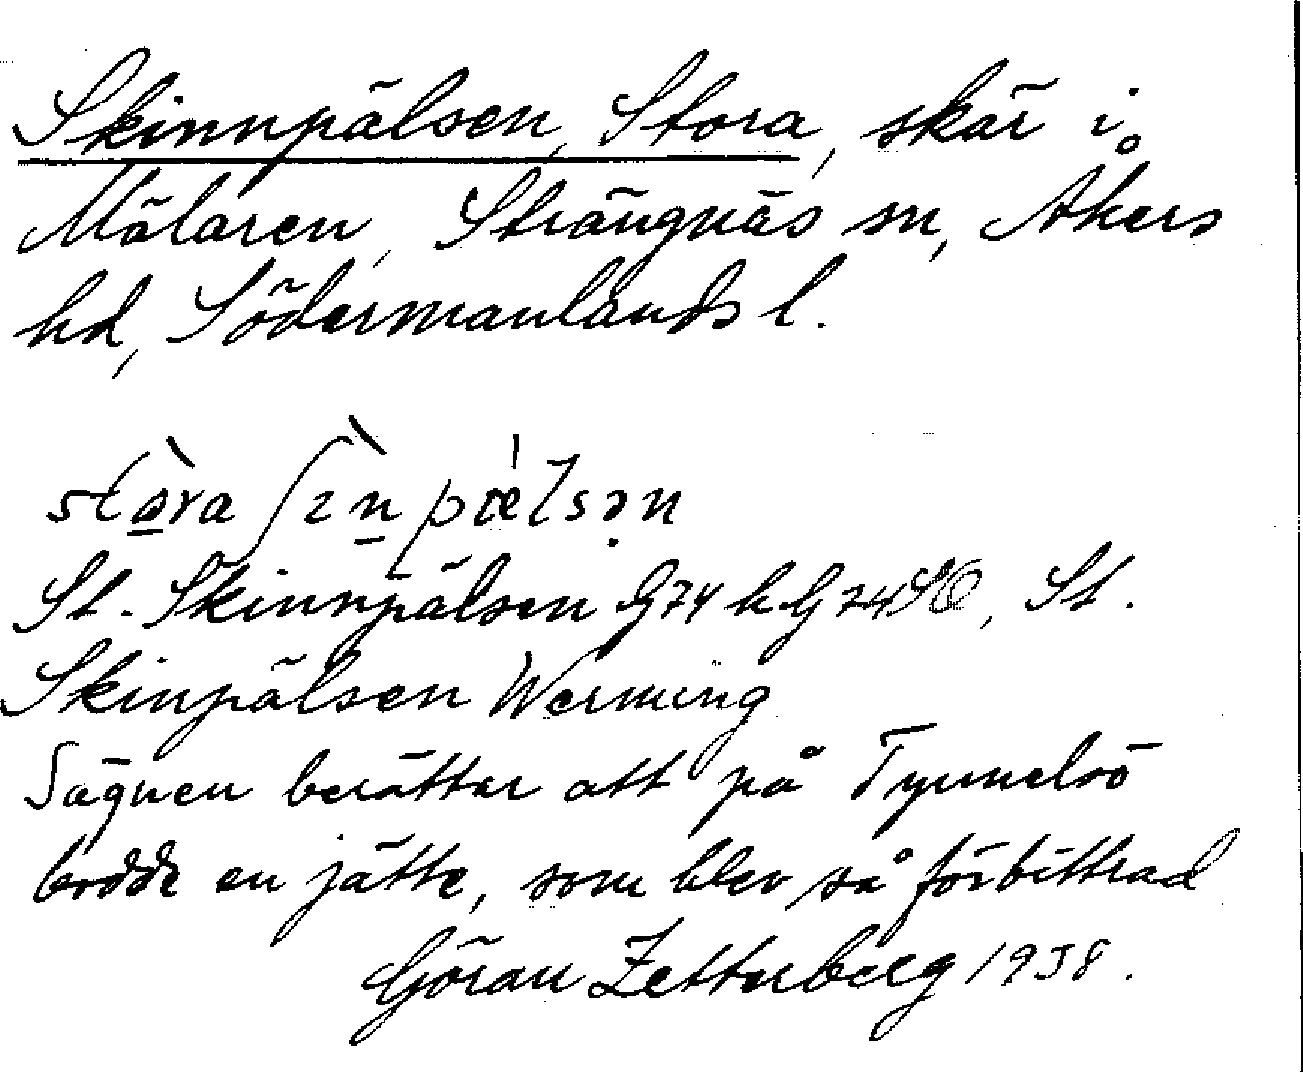 Skinnpälsen, Stora, skär i
Mälaren, Strängnäs sn, Åkers
hd, Södermanlands l.
stòra ʃìn pælsən
St. Skinnpälsen G74 h G74 SÖ, St.
Skinpälsen Werming
Sägnen berättar att på Tynnelsö
bodde en jätte, som blev så förbittrad
Göran Zetterberg 1938.